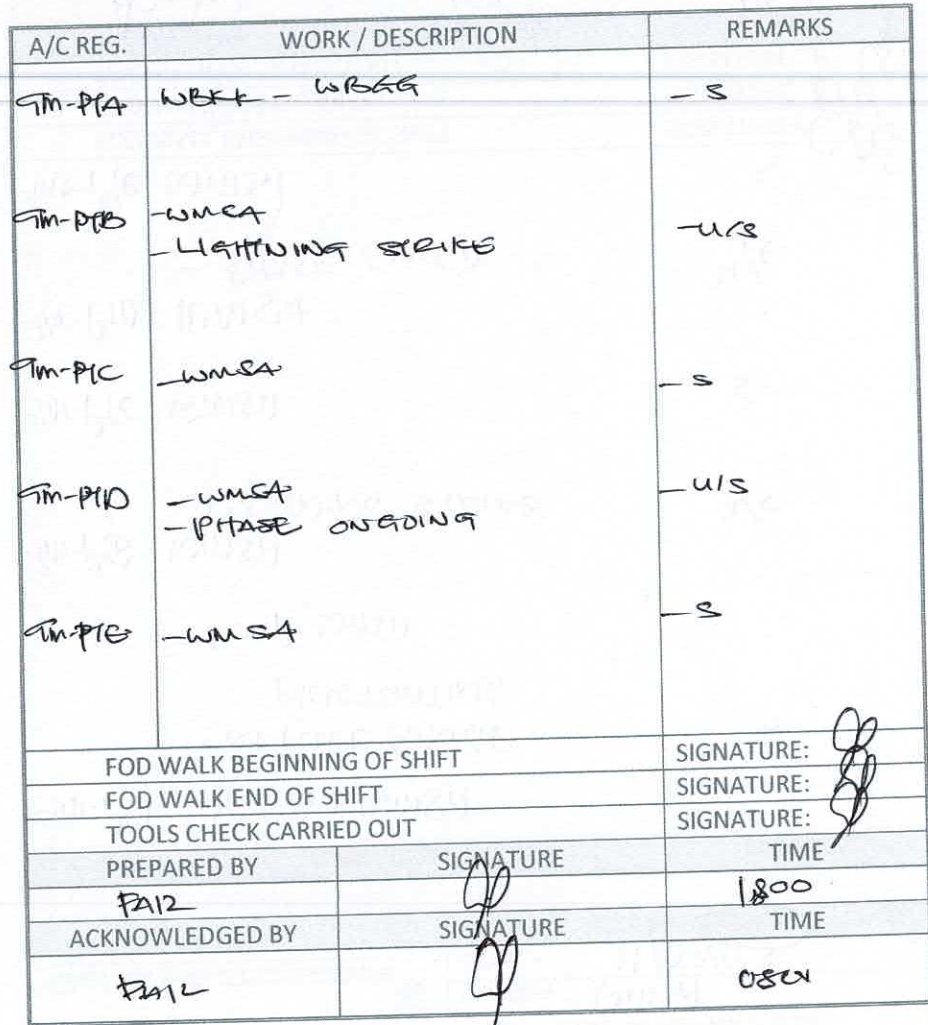 A/C REG. WORK / DESCRIPTION REMARKS
9M-PIA WBKK - WBGG - S
9M-PIB - WMSA - U/S
- LIGHTNING STRIKE
9M-PIC - WMSA - S
9M-PID - WMSA - U/S
- PHASE ONGOING
9M-PIE - WMSA - S
FOD WALK BEGINNING OF SHIFT SIGNATURE:
FOD WALK END OF SHIFT SIGNATURE:
TOOLS CHECK CARRIED OUT SIGNATURE:
PREPARED BY SIGNATURE TIME
1800
ACKNOWLEDGED BY SIGNATURE TIME